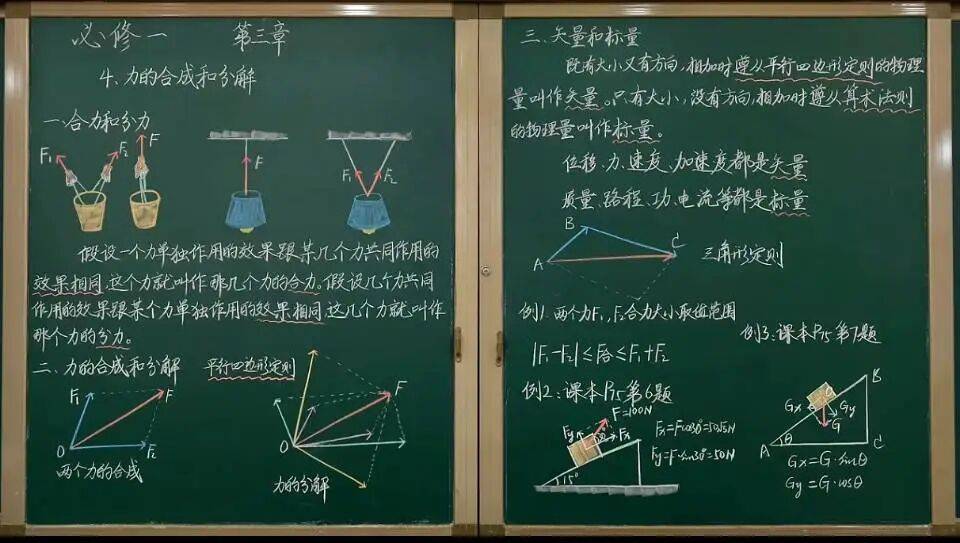 必修一 第三章
4、力的合成和分解
一、合力和分力
F₁ F₂ F F F₁ F₂
假设一个力单独作用的效果跟某几个力共同作用的
效果相同,这个力就叫作那几个力的合力。假设几个力共同
作用的效果跟某个力单独作用的效果相同,这几个力就叫作
那个力的分力。
二、力的合成和分解 平行四边形定则
F₁ F O F₂
两个力的合成
F O
力的分解
三、矢量和标量
既有大小又有方向,相加时遵从平行四边形定则的物理
量叫作矢量。只有大小,没有方向,相加时遵从算术法则
的物理量叫作标量。
位移、力、速度、加速度都是矢量
质量、路程、功、电流等都是标量
B
A C 三角形定则
例1、两个力F₁,F₂合力大小取值范围
|F₁-F₂|≤F合≤F₁+F₂
例2:课本P₇₅第6题
F=100N
Fy Fx
15°
Fx=F·cos30°=50√3N
Fy=F·sin30°=50N
例3:课本P₇₅第7题
B
Gx Gy
G
A θ C
Gx=G·sinθ
Gy=G·cosθ